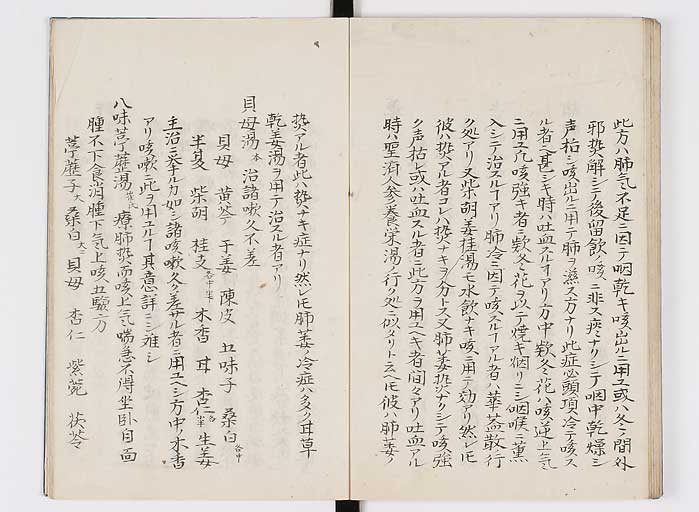 此方ハ肺氣不足ニ因テ咽乾キ咳出ルニ用ユ或ハ冬ノ間外
邪熱解シテ後留飲ノ咳ニ非ス痰ナクシテ咽中乾燥シ
声枯シ咳出ルニ用テ肺ヲ濕ス方ナリ此症必頭項冷テ咳ス
ル者ハ甚シキ時ハ吐血スルヿアリ方中欵冬花ハ咳逆上氣
ニ用ユ凡咳強キ者ニ欵冬花ヲ以テ焼キ烟リニシ咽喉ニ薫
入シテ治スルヿアリ肺冷ニ因テ咳スルヿアル者ハ華蓋散ノ行
ク処アリ又柴胡姜桂湯モ水飲ナキ咳ニ用テ効アリ然レモ
彼ハ熱アル者コレハ熱ナキヲ分トス又肺萎熱ナクシテ咳強
ク声枯レ或ハ吐血スル者ニ此方ヲ用ユヘキ者間々アリ吐血アル
時ハ聖済人参養栄湯ノ行ク処ニ似タリト云ヘモ彼ハ肺萎ノ
熱アル者此ハ熱ナキ症ナリ然レモ肺萎ノ冷症ハ多ク甘草
乾姜湯ヲ用テ治スル者アリ
貝母湯 本 治諸嗽久不差
貝母 黄芩 干姜 陳皮 五味子 桑白 各中
半夏 柴胡 桂支 木香 甘 杏仁 生姜
主治ニ挙ルカ如シ諸咳嗽久ク差サル者ニ用ユヘシ方中ノ木香
アリ咳嗽ニ此ヲ用ユルヿ其意詳ニシ難シ
八味葶藶湯 療肺熱而咳上氣喘急不得坐臥自面
腫不下食消腫下氣上咳五驗方
葶藶子 大 桑白 大 貝母 杏仁 紫菀 茯苓